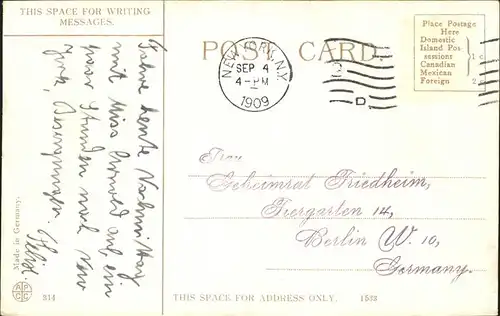 THIS SPACE FOR WRITING
MESSAGES.
POST CARD.
NEW YORK, N.Y.
SEP 4
4-PM
1909
D
Place Postage
Here
Domestic
Island Pos
sessions
Canadian
Mexican
Foreign
1 c
2
Fahre heute Nachmittag
mit Miss auf ein
paar Stunden nach New
York, Besorgungen.
Frau
Geheimrat Friedheim,
Tiergarten 14,
Berlin W. 10,
Germany.
Made in Germany.
A P C C
314
THIS SPACE FOR ADDRESS ONLY.
1523